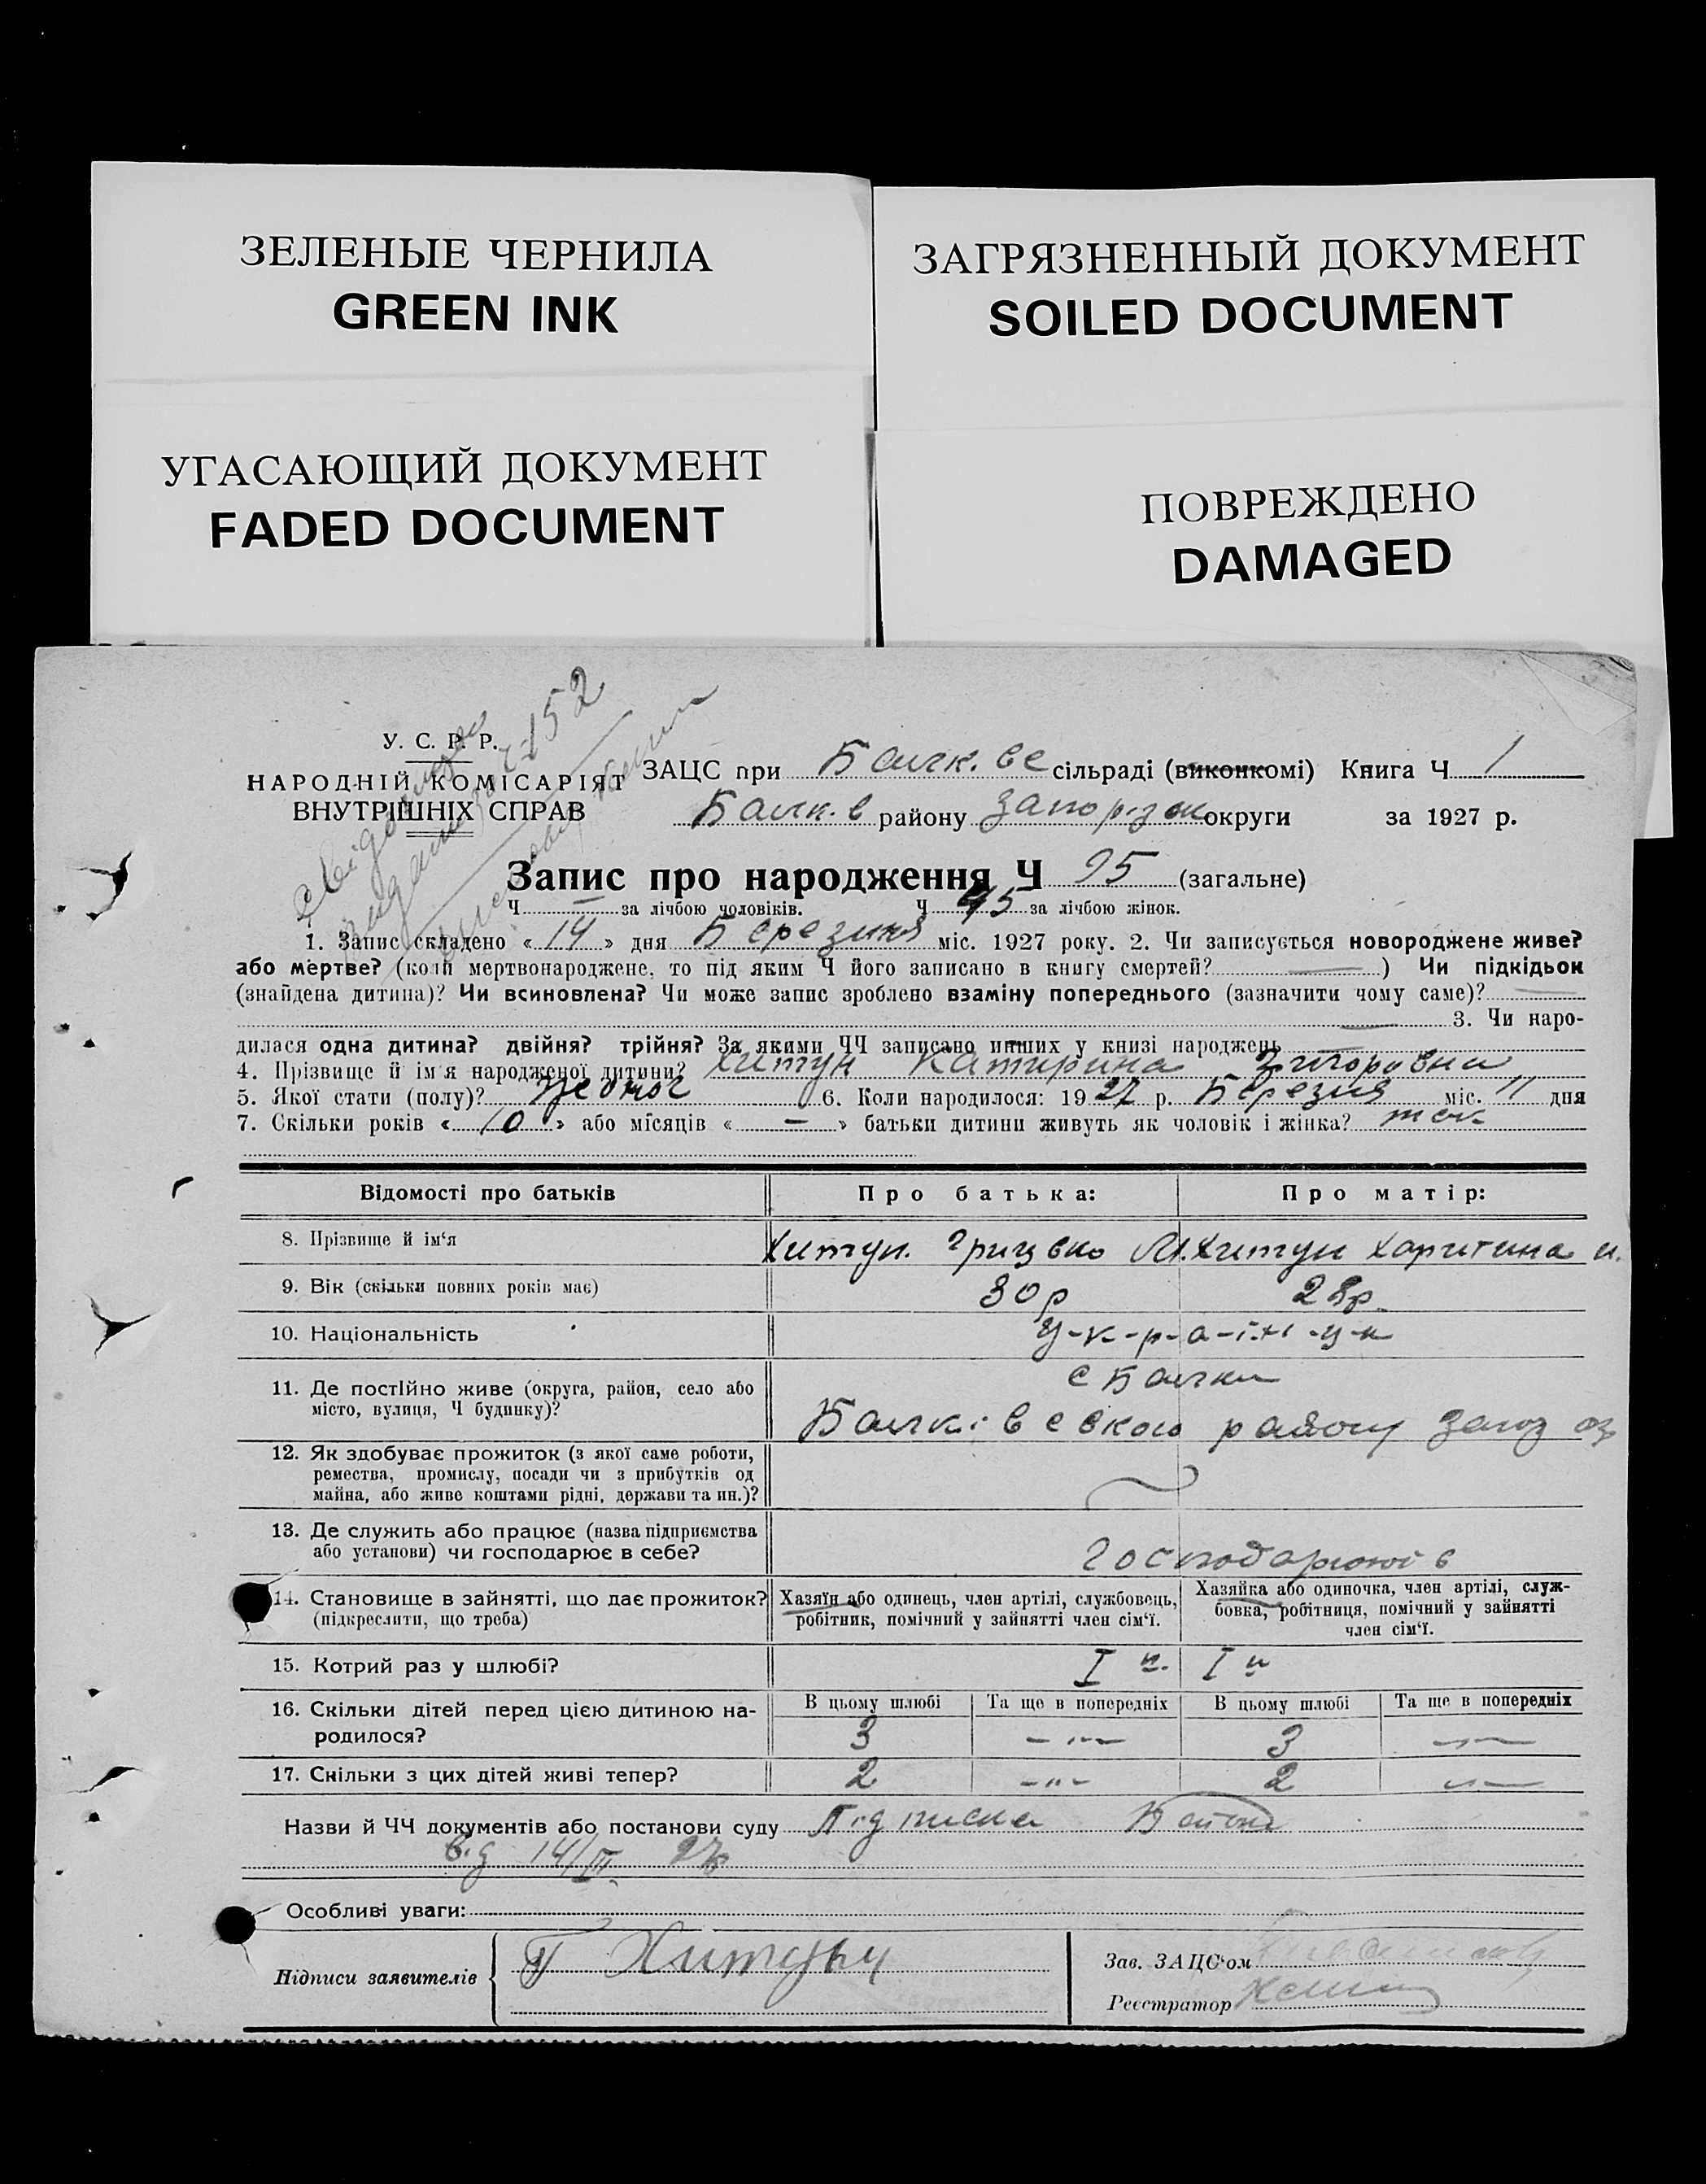 ЗЕЛЕНЫЕ ЧЕРНИЛА
GREEN INK
ЗАГРЯЗНЕННЫЙ ДОКУМЕНТ
SOILED DOCUMENT
УГАСАЮЩИЙ ДОКУМЕНТ
FADED DOCUMENT
ПОВРЕЖДЕНО
DAMAGED
У. С. Р. Р.
НАРОДНІЙ КОМІСАРІЯТ
ВНУТРІШНІХ СПРАВ
ЗАЦС при сільраді (виконкомі) Книга Ч 1
району округи за 1927 р.
Запис про народження Ч 95 (загальне)
Ч — за лічбою чоловіків. Ч 45 за лічбою жінок.
1. Запис складено « 14 » дня Березня міс. 1927 року. 2. Чи записується новороджене живе?
або мертве? (коли мертвонароджене, то під яким Ч його записано в книгу смертей? — ) Чи підкідьок
(знайдена дитина)? Чи всиновлена? Чи може запис зроблено взаміну попереднього (зазначити чому саме)? —
— 3. Чи наро-
дилася одна дитина? двійня? трійня? За якими ЧЧ записано инших у книзі народжень
4. Прізвище й ім'я народженої дитини? Хитун Катирина
5. Якої стати (полу)? 6. Коли народилося: 1927 р. Березня міс. 11 дня
7. Скільки років « 10 » або місяців « — » батьки дитини живуть як чоловік і жінка? так
Відомості про батьків
Про батька:
Про матір:
8. Прізвище й ім'я
Хитун. Грицько М.
Хитун Харитина и.
9. Вік (скільки повних років має)
30 р
28 р.
10. Національність
У-к-р-а-ї-н-ц-и
11. Де постійно живе (округа, район, село або
місто, вулиця, Ч будинку)?
с Балки
Балківського району Запоз ок
12. Як здобуває прожиток (з якої саме роботи,
ремества, промислу, посади чи з прибутків од
майна, або живе коштами рідні, держави та ин.)?
13. Де служить або працює (назва підприємства
або установи) чи господарює в себе?
14. Становище в зайнятті, що дає прожиток?
(підкреслити, що треба)
Хазяїн або одинець, член артілі, службовець,
робітник, помічний у зайнятті член сім'ї.
Хазяйка або одиночка, член артілі, служ-
бовка, робітниця, помічний у зайнятті
член сім'ї.
15. Котрий раз у шлюбі?
I й.
I й
16. Скільки дітей перед цією дитиною на-
родилося?
В цьому шлюбі
Та ще в попередніх
В цьому шлюбі
Та ще в попередніх
3
– „ –
3
—
17. Скільки з цих дітей живі тепер?
2
– „ –
2
—
Назви й ЧЧ документів або постанови суду Підписка Батька
від 14/III 27р
Особливі уваги:
Підписи заявителів
Г Хитунь
Зав. ЗАЦС'ом
Реєстратор